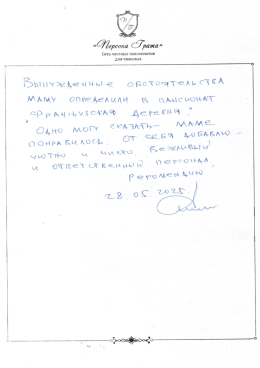 «Персона Грата»
Сеть частных пансионатов
для пожилых
Вынужденные обстоятельства
маму определили в пансионат
"Французская деревня."
Одно могу сказать – маме
понравилось. От себя добавлю –
уютно и чисто, вежливый
и ответственный персонал.
Рекомендую
28.05.2025.